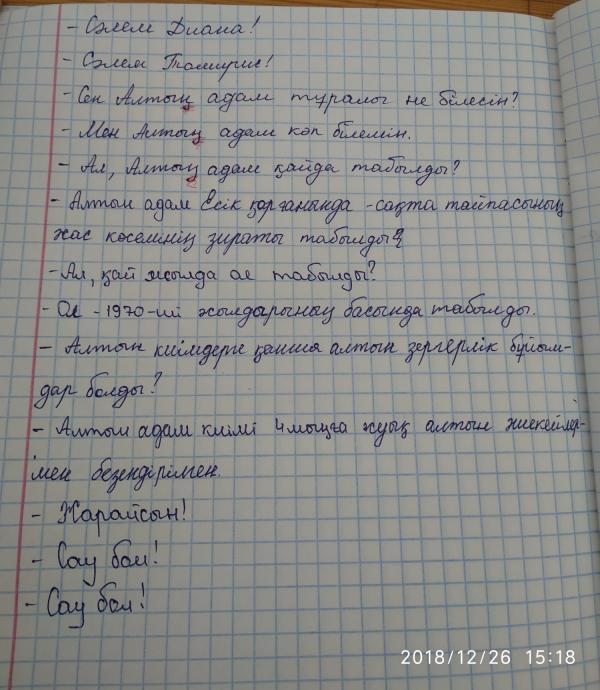 - Сәлем Диана!
- Сәлем Томирис!
- Сен Алтың адам тұралы не білесін?
- Мен Алтың адам көп білемін.
- Ал, Алтың адам қайда табылды?
- Алтын адам Есік қорғанында - сақта тайпасының
жас көсемінің зираты табылды
- Ал, қай жылда ол табылды?
- Ол - 1970-ші жылдарының басында табылды.
- Алтын киімдерге қанша алтын зергерлік бұйым-
дар болды?
- Алтын адам киімі 4 мыңға жуық алтын жиекейлер-
імен безендірілген.
- Жарайсын!
- Сау бол!
- Сау бол!
2018/12/26 15:18